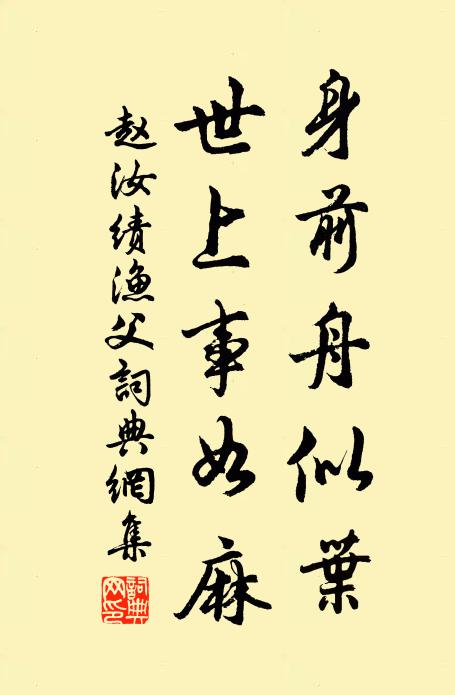 身前舟似葉
世上事如麻
赵汝績漁父詞典網集
詞典網印